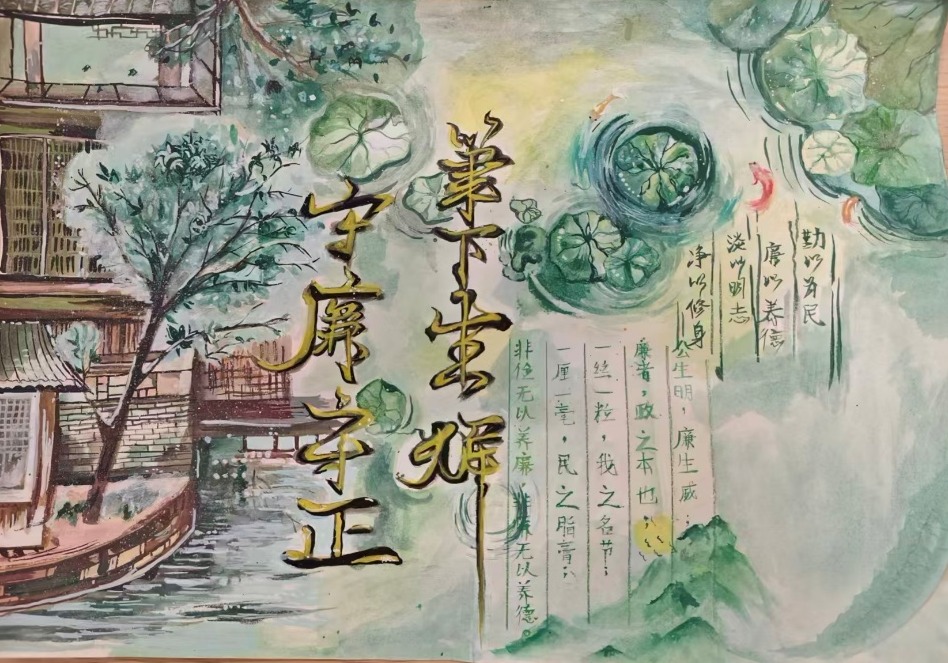 筆下生辉
守廉守正
勤以为民
廉以养德
淡以明志
净以修身
公生明，廉生威；
廉者，政之本也；
一丝一粒，我之名节；
一厘一毫，民之脂膏；
非俭无以养廉，非廉无以养德。